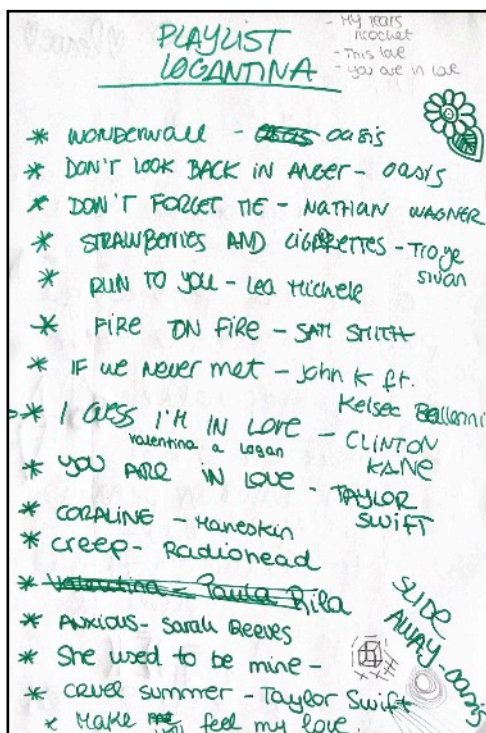 PLAYLIST
LOGANTINA
- My tears
ricochet
- This love
- you are in love
* WONDERWALL - oasis
* DON'T LOOK BACK IN ANGER - oasis
* DON'T FORGET ME - NATHAN WAGNER
* STRAWBERRIES AND CIGARETTES - Troye
Sivan
* RUN TO YOU - Lea Michele
* FIRE ON FIRE - SAM SMITH
* IF we never met - John K ft.
Kelsea Ballerini
* I GUESS I'M IN LOVE - CLINTON
KANE
Valentina a Logan
* YOU ARE IN LOVE - TAYLOR
SWIFT
* CORALINE - Maneskin
* creep - Radiohead
* Valentina - Paula Rila
* ANXIOUS - Sarah Reeves
* She used to be mine -
* cruel summer - Taylor Swift
* Make you feel my love.
SLIDE
AWAY - oasis